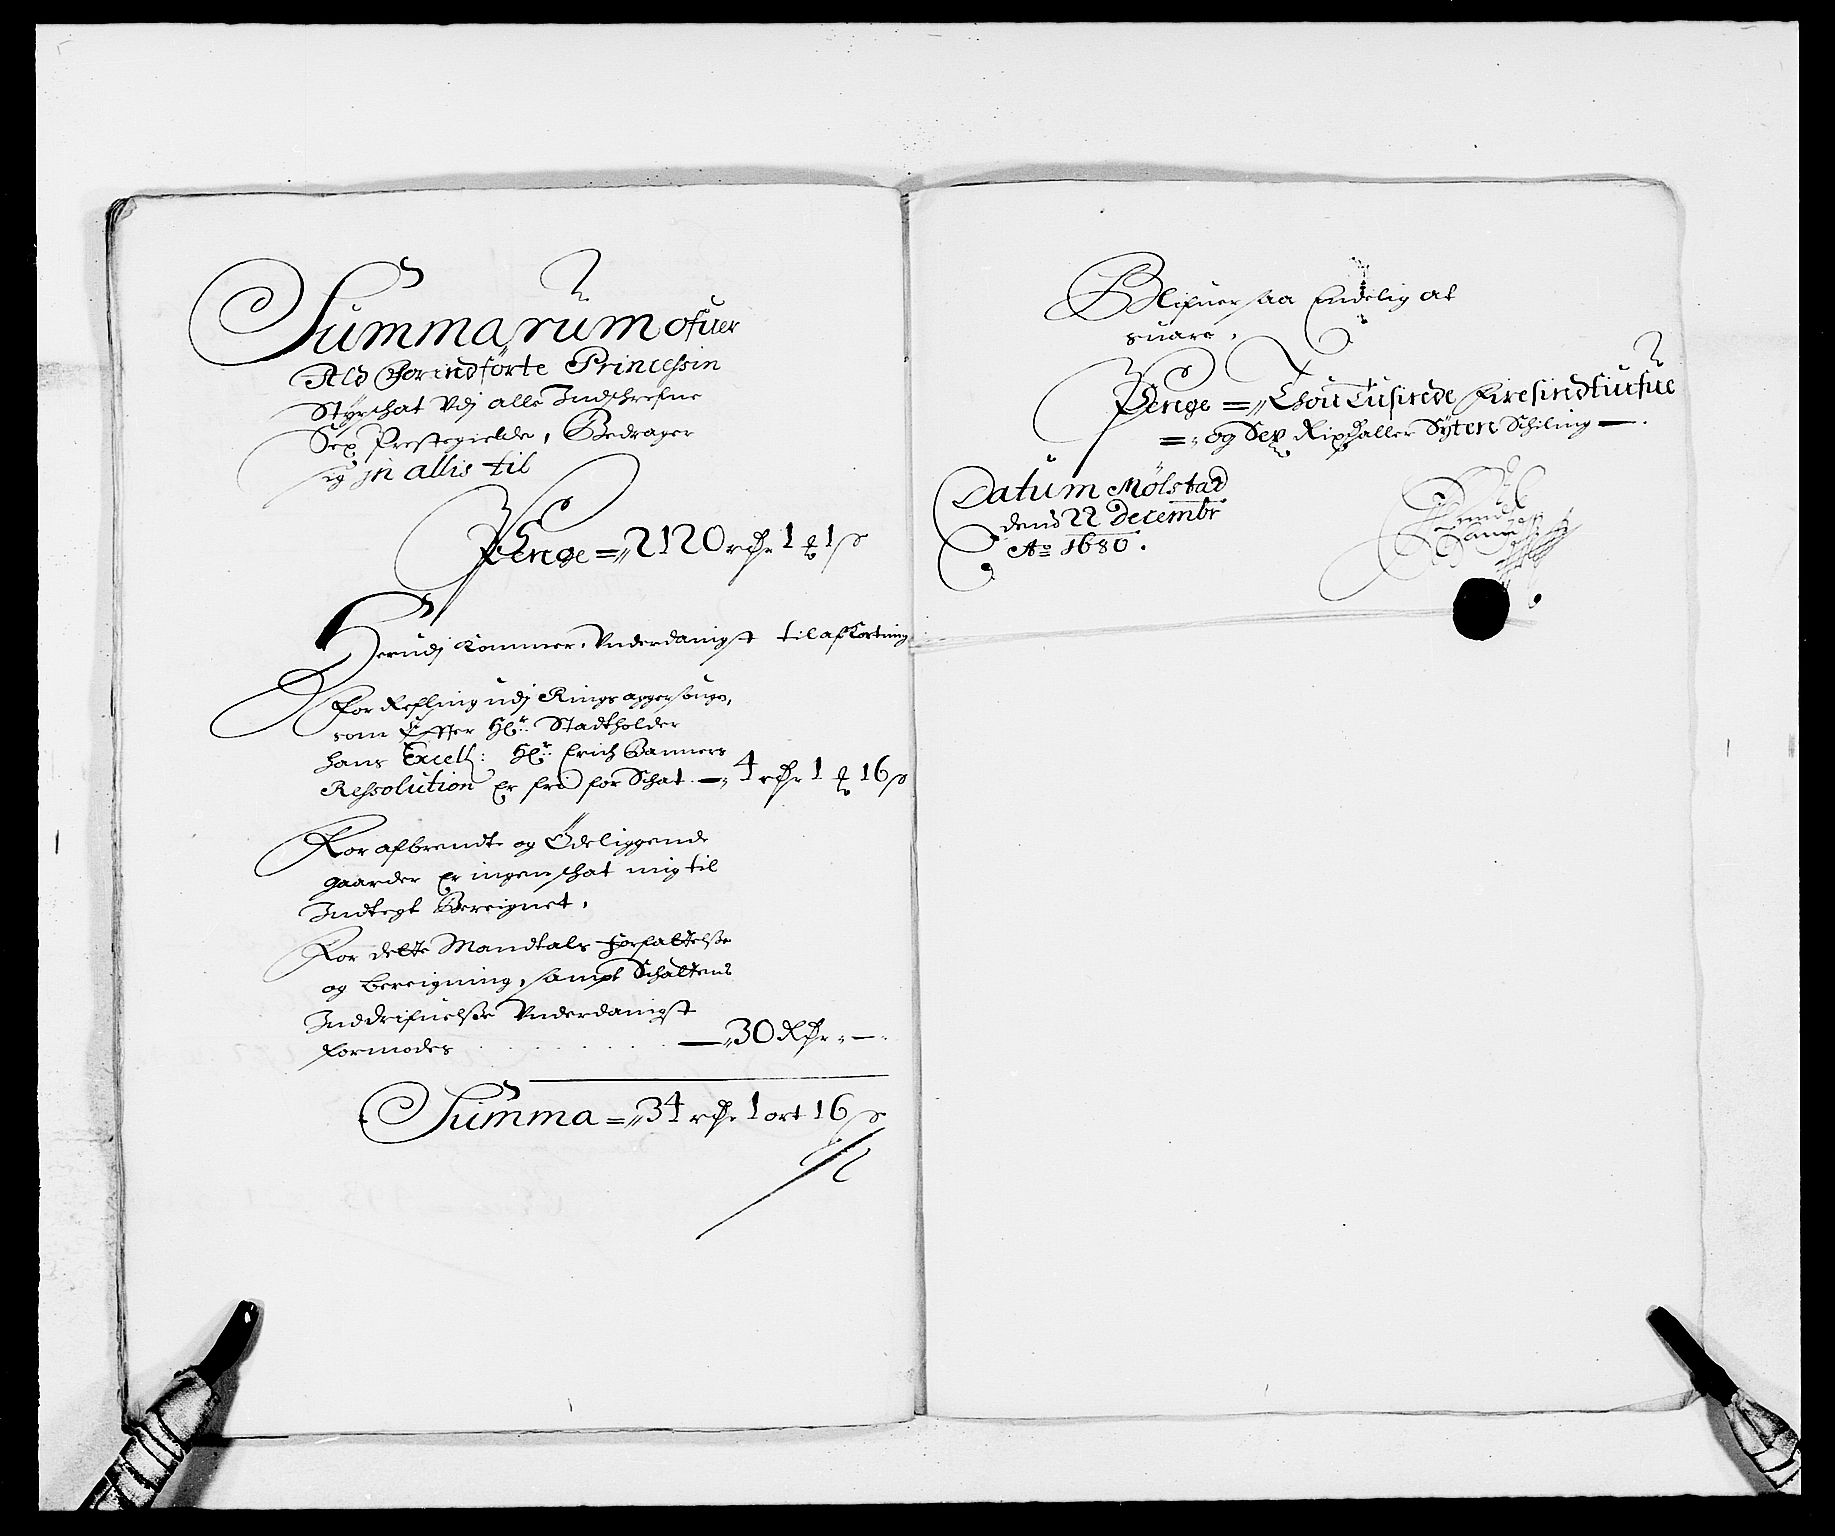 Summarum ofuer
Ald Forindförte Princessin
Styrschat Vdj alle Indschrefne
Sex Prestegielde, Bedrager
sig in allis til
Penge = 2120 rdr 1 ꝛ 1 ß
Herudj kommer Vnderdanigst til afkortning
For Refling udj Ringsagger sougn,
som Effter Hr: Stadtholder
hans Excell: Hr: Erich Banners
Ressolution Er fri for Schat — 4 rdr 1 ꝛ 16 ß
For afbrendte og Ödeliggende
gaarder Er ingen schat mig til
Indtegt Bereignet,
For dette Mandtals forfattelsse
og bereigning, sampt Schattens
Inddrifuelsse Vnderdanigst
formodes . . . . . . . — 30 Rdr — .
Summa = 34 rdr 1 ort 16 ß
Blifuer saa Endelig at
suare,
Penge = Thou Tusinde Firesindtiufue
= og Sex Rixdaller Syten Schiling — .
Datum Mölstad
dend 22 Decembr
Ao 1680 .